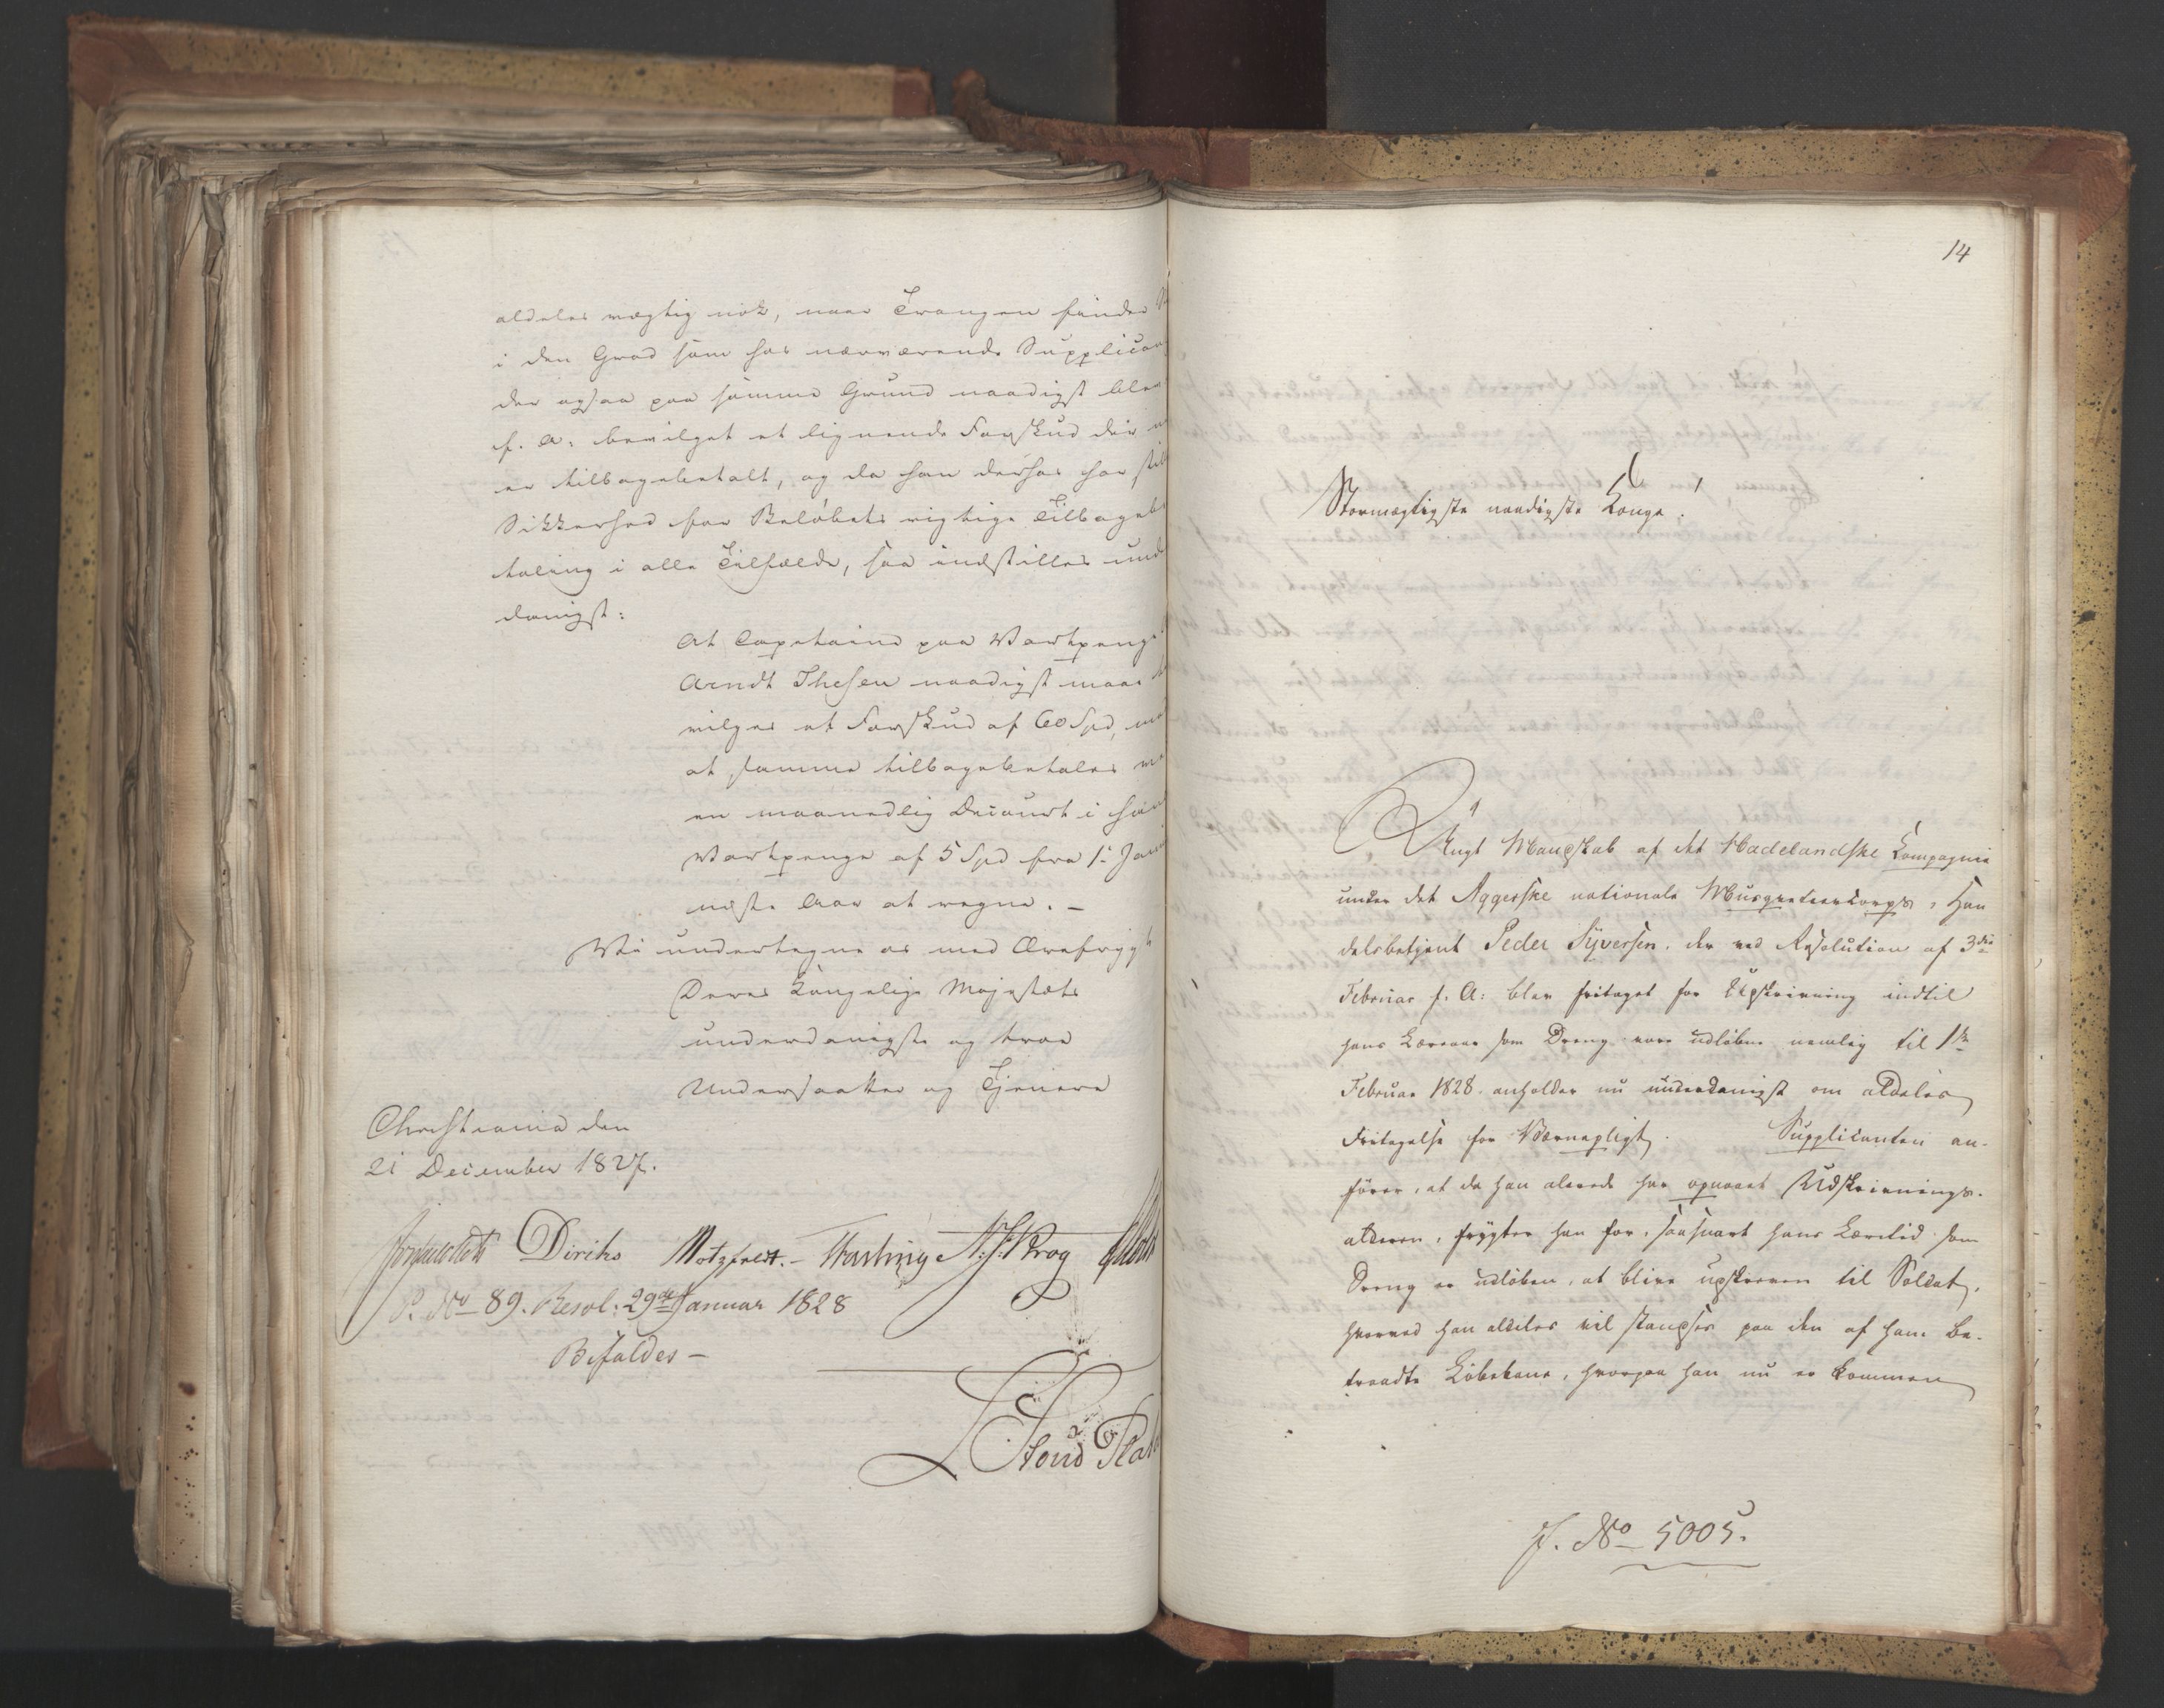 aldeles vægtig nok, naar Trangen finder
i den Grad som hos nærværende Supplican
der ogsaa paa samme Grund naadigst blev
f. A. bevilget et lignende Forskud der
er tilbagebetalt, og da han derhos har still
Sikkerhed for Beløbets rigtige Tilbagebe
taling i alle Tilfælde, saa indstilles unde
danigst:
At Capitaine paa Vartpenge
Arndt Thesen naadigst maae
vilges et Forskud af 60 Spd, m
at samme tilbagebetales m
en maanedlig Decourt i han
Vartpenge af 5 Spd fra 1. Janu
næste Aar at regne. –
Vi undertegne os med Ærefrygt
Deres Kongelige Majestæts
underdanigste og troe
Undersaatter og Tjenere
Christiania den
21 December 1827.
Diriks Motzfeldt. – Fasting A. S. Krog
P. No 89. Resol: 29de Januar 1828
Bifaldes –
14
Stormægtigste naadigste Konge!
Ungt Mandskab af det Hadelandske Kompagnie
under det Aggerske nationale Musqueteerkorps, Han
delsbetjent Peder Syversen, der ved Resolution af 3die
Februar f. A: blev fritaget for Udskrivning indtil
hans Læreaar som Dreng vare udløbne nemlig til 1ste
Februar 1828 anholder nu underdanigst om aldeles
Fritagelse for Værnepligt. Supplicanten an-
fører, at da han alerede har opnaaet Udskrivnings-
alderen, frygter han for, saasnart hans Læretid som
Dreng er udløben, at blive udskreven til Soldat,
hvorved han aldeles vil standses paa den af ham be-
traadte Løbebane, hvorpaa han nu er kommen
J. No 5005.